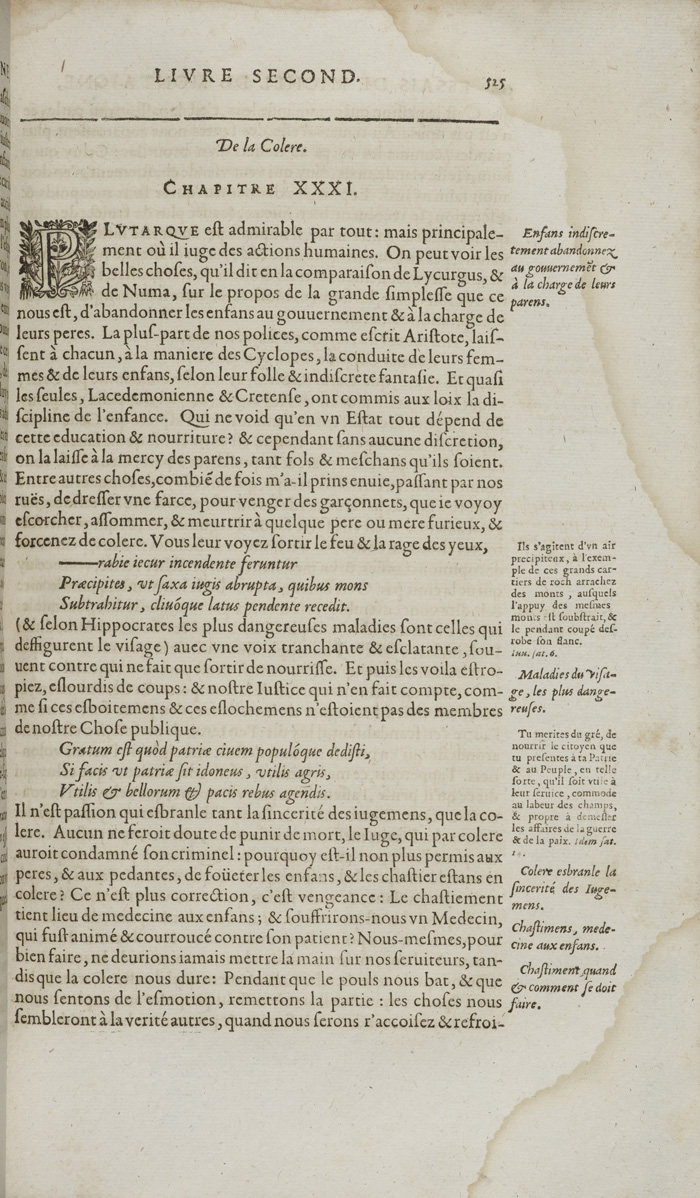 LIVRE SECOND.
525
De la Colere.
CHAPITRE XXXI.
PLVTARQVE est admirable par tout: mais principale-
ment où il iuge des actions humaines. On peut voir les
belles choses, qu'il dit en la comparaison de Lycurgus, &
de Numa, sur le propos de la grande simplesse que ce
nous est, d'abandonner les enfans au gouuernement & à la charge de
leurs peres. La plus-part de nos polices, comme escrit Aristote, lais-
sent à chacun, à la maniere des Cyclopes, la conduite de leurs fem-
mes & de leurs enfans, selon leur folle & indiscrete fantasie. Et quasi
les seules, Lacedemonienne & Cretense, ont commis aux loix la di-
scipline de l'enfance. Qui ne void qu'en vn Estat tout dépend de
cette education & nourriture? & cependant sans aucune discretion,
on la laisse à la mercy des parens, tant fols & meschans qu'ils soient.
Entre autres choses, combiẽ de fois m'a-il prins enuie, passant par nos
ruës, de dresser vne farce, pour venger des garçonnets, que ie voyoy
escorcher, assommer, & meurtrir à quelque pere ou mere furieux, &
forcenez de colere. Vous leur voyez sortir le feu & la rage des yeux,
——rabie iecur incendente feruntur
Præcipites, vt saxa iugis abrupta, quibus mons
Subtrahitur, cliuóque latus pendente recedit.
(& selon Hippocrates les plus dangereuses maladies sont celles qui
deffigurent le visage) auec vne voix tranchante & esclatante, sou-
uent contre qui ne fait que sortir de nourrisse. Et puis les voila estro-
piez, eslourdis de coups: & nostre Iustice qui n'en fait compte, com-
me si ces esboitemens & ces eslochemens n'estoient pas des membres
de nostre Chose publique.
Gratum est quòd patriæ ciuem populóque dedisti,
Si facis vt patriæ sit idoneus, vtilis agris,
Vtilis & bellorum & pacis rebus agendis.
Il n'est passion qui esbranle tant la sincerité des iugemens, que la co-
lere. Aucun ne feroit doute de punir de mort, le Iuge, qui par colere
auroit condamné son criminel: pourquoy est-il non plus permis aux
peres, & aux pedantes, de foüeter les enfans, & les chastier estans en
colere? Ce n'est plus correction, c'est vengeance: Le chastiement
tient lieu de medecine aux enfans; & souffririons-nous vn Medecin,
qui fust animé & courroucé contre son patient? Nous-mesmes, pour
bien faire, ne deurions iamais mettre la main sur nos seruiteurs, tan-
dis que la colere nous dure: Pendant que le pouls nous bat, & que
nous sentons de l'esmotion, remettons la partie: les choses nous
sembleront à la verité autres, quand nous serons r'accoisez & refroi-
Enfans indiscre-
tement abandonnez
au gouuernemẽt &
à la charge de leurs
parens.
Ils s'agitent d'vn air
precipiteux, à l'exem-
ple de ces grands car-
tiers de roch arrachez
des monts, ausquels
l'appuy des mesmes
monts est soubstrait, &
le pendant coupé des-
robe son flanc.
Iuu. sat. 6.
Maladies du visa-
ge, les plus dange-
reuses.
Tu merites du gré, de
nourrir le citoyen que
tu presentes à ta Patrie
& au Peuple, en telle
sorte, qu'il soit vtile à
leur seruice, commode
au labeur des champs,
& propre à demesler
les affaires de la guerre
& de la paix. Idem sat.
Colere esbranle la
sincerité des Iuge-
mens.
Chastimens, mede-
cine aux enfans.
Chastiment quand
& comment se doit
faire.